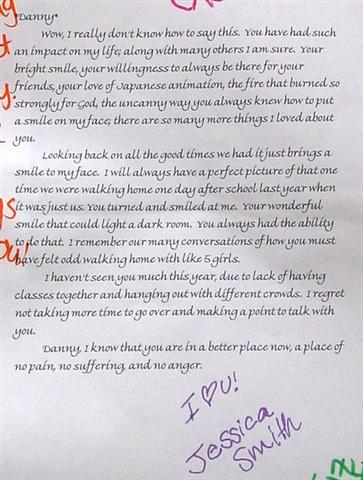 Danny*
Wow, I really don't know how to say this. You have had such
an impact on my life; along with many others I am sure. Your
bright smile, your willingness to always be there for your
friends, your love of Japanese animation, the fire that burned so
strongly for God, the uncanny way you always knew how to put
a smile on my face; there are so many more things I loved about
you.
Looking back on all the good times we had it just brings a
smile to my face. I will always have a perfect picture of that one
time we were walking home one day after school last year when
it was just us. You turned and smiled at me. Your wonderful
smile that could light a dark room. You always had the ability
to do that. I remember our many conversations of how you must
have felt odd walking home with like 5 girls.
I haven't seen you much this year, due to lack of having
classes together and hanging out with different crowds. I regret
not taking more time to go over and making a point to talk with
you.
Danny, I know that you are in a better place now, a place of
no pain, no suffering, and no anger.
I ♡ U!
Jessica
Smith